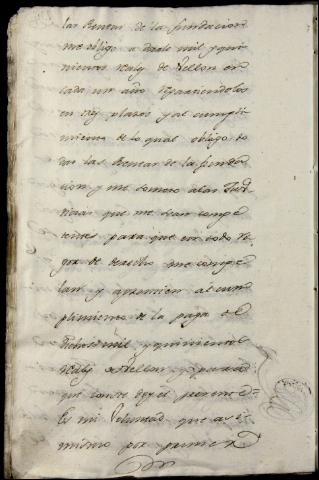 las Rentas de la fundacion
me obligo a darle mil y qui
nientos reales de Vellon en
cada un año repartiendolos
en tres plazos y al cumpli
miento de lo qual obligo to
das las Rentas de la funda
cion y me someto a las Just
ticias que me sean compe
tentes para que con todo ri
gor de derecho me compe
lan y apremien al cum
plimiento de la paga de
dichos mil y quinientos
reales de Vellon y para
que conste doy el presente
Es mi Voluntad que asi
mismo por primera